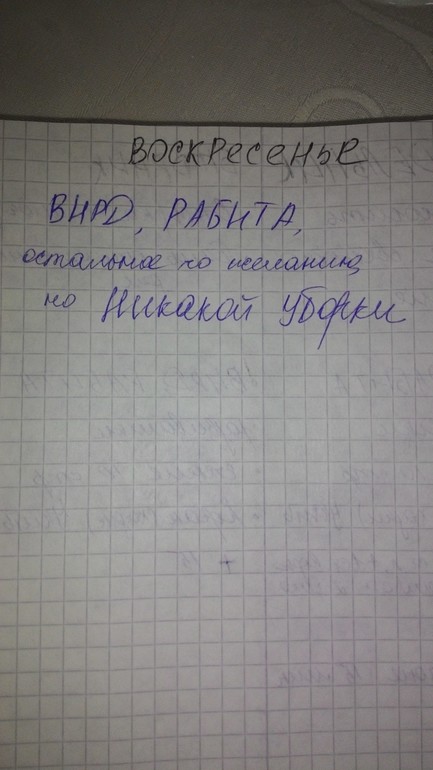 ВОСКРЕСЕНЬЕ
ВИРД, РАБИТА,
остальное по желанию,
но НИКАКОЙ УБОРКИ